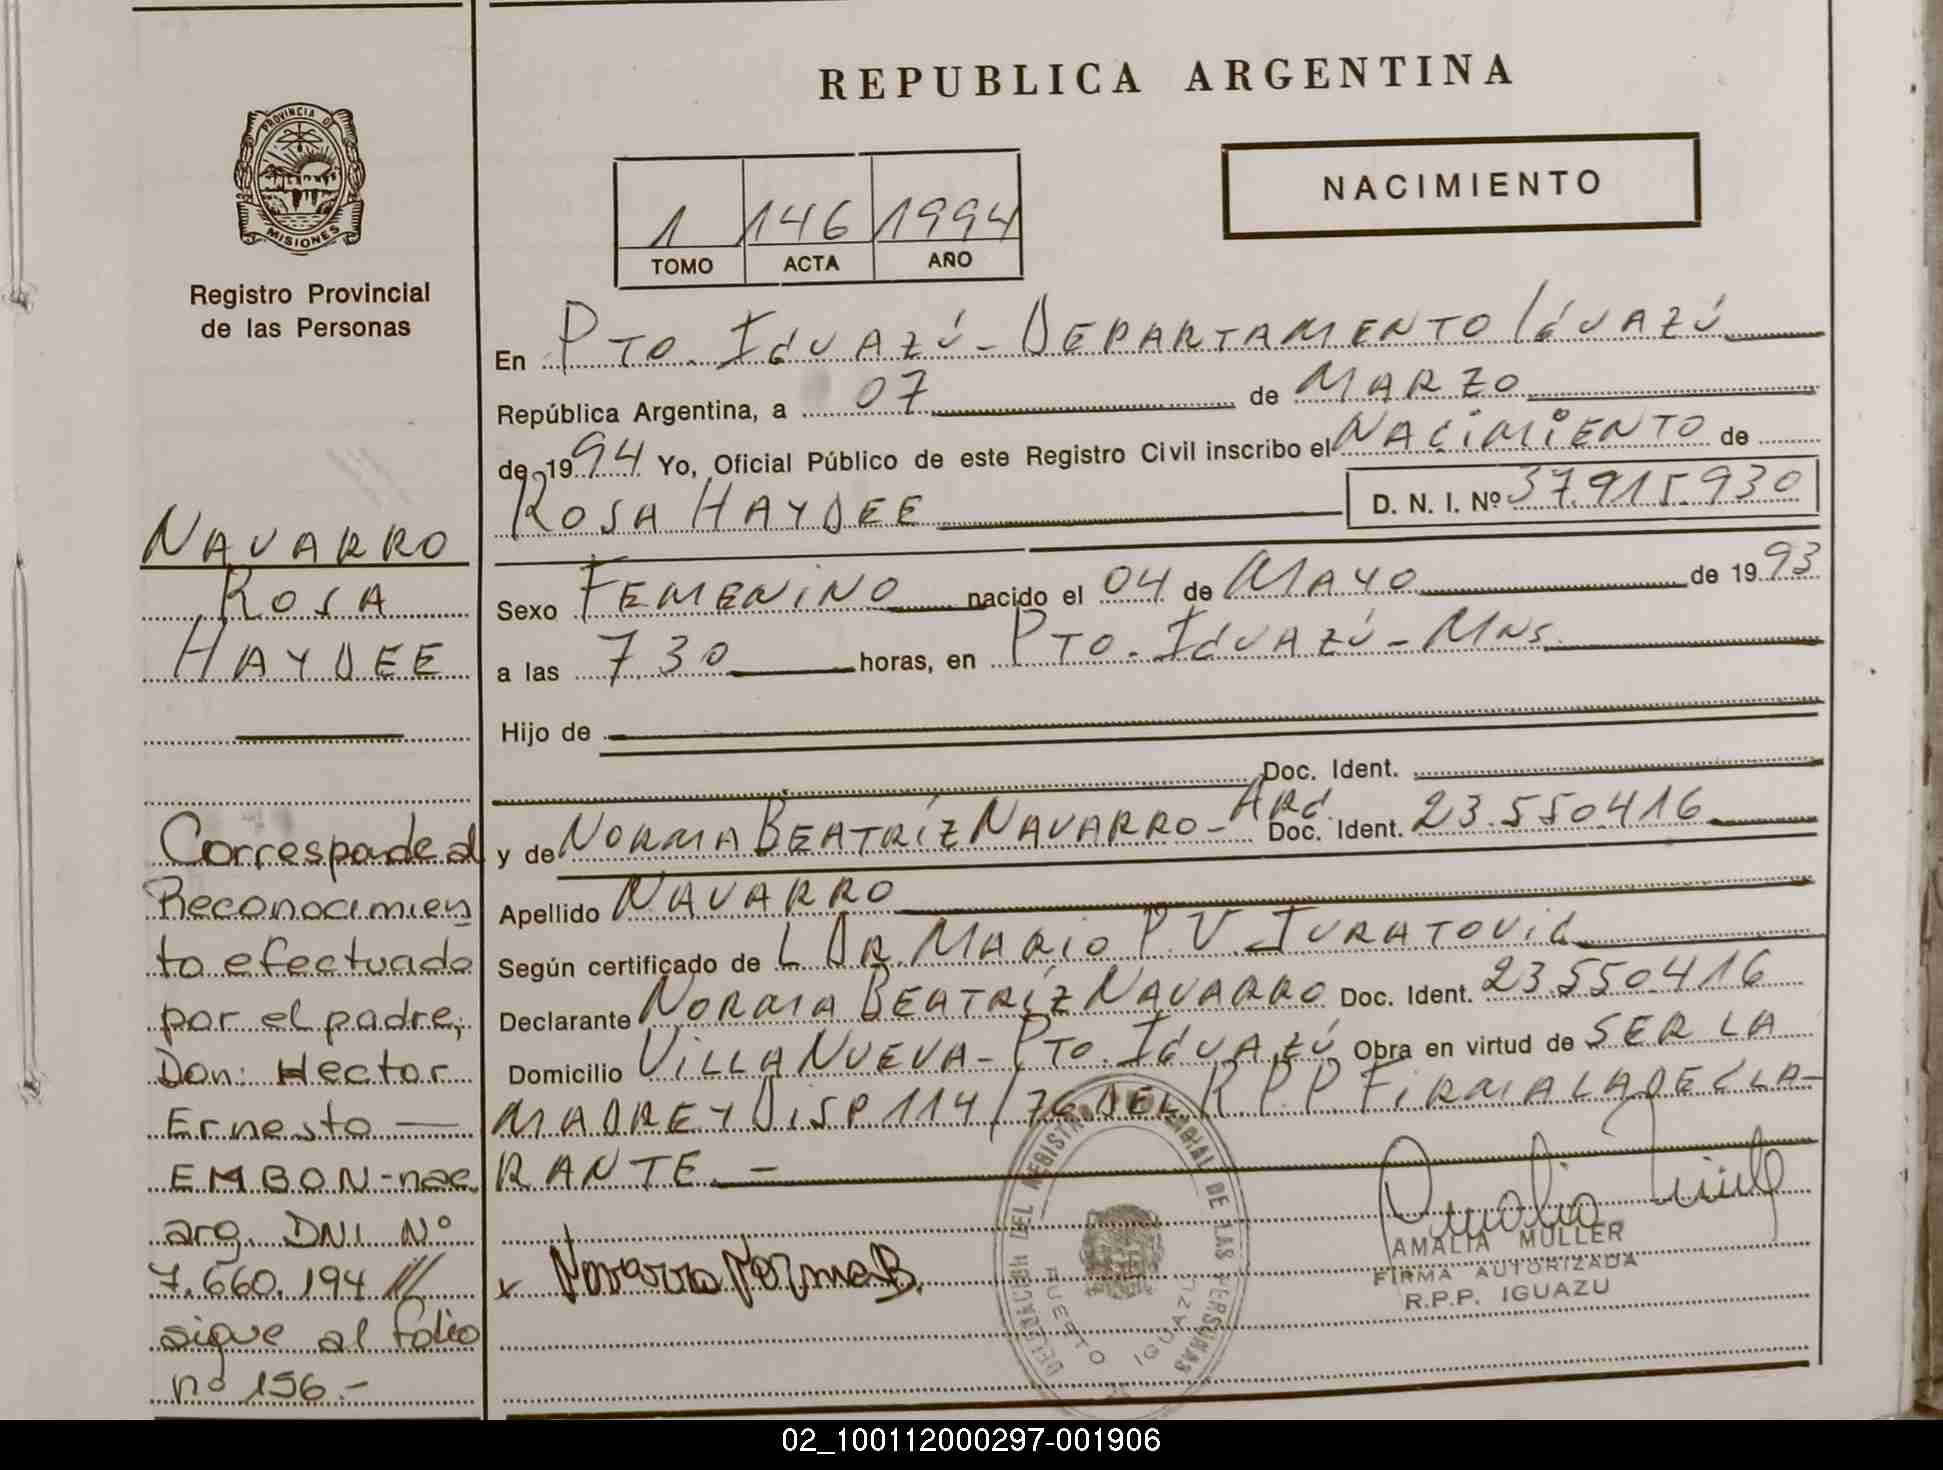 REPUBLICA ARGENTINA
PROVINCIA DE
MISIONES
Registro Provincial
de las Personas
NACIMIENTO
1 146 1994
TOMO ACTA AÑO
En PTO. IGUAZÚ - DEPARTAMENTO IGUAZÚ
República Argentina, a 07 de MARZO
de 1994 Yo, Oficial Público de este Registro Civil inscribo el NACIMIENTO de
ROSA HAYDEE D. N. I. Nº 37.915.930
Sexo FEMENINO nacido el 04 de MAYO de 1993
a las 7.30 horas, en PTO. IGUAZÚ - MNS.
Hijo de
Doc. Ident.
y de NORMA BEATRÍZ NAVARRO - ARG. Doc. Ident. 23.550.416
Apellido NAVARRO
Según certificado de L DR. MARIO P. V. JURATOVIC
Declarante NORMA BEATRÍZ NAVARRO Doc. Ident. 23.550.416
Domicilio VILLA NUEVA - PTO. IGUAZÚ Obra en virtud de SER LA
MADRE Y DISP 114/76 DEL R.P.P FIRMA LA DECLA-
RANTE. -
x Navarro Norma B.
AMALIA MULLER
FIRMA AUTORIZADA
R.P.P. IGUAZU
DELEGACION DEL REGISTRO PROVINCIAL DE LAS PERSONAS
PUERTO IGUAZU
NAVARRO
ROSA
HAYDEE
Corresponde al
Reconocimien
to efectuado
por el padre,
Don: Hector
Ernesto —
EMBON - nac.
arg. DNI Nº
7.660.194 //
sigue al folio
nº 156.-
02_100112000297-001906